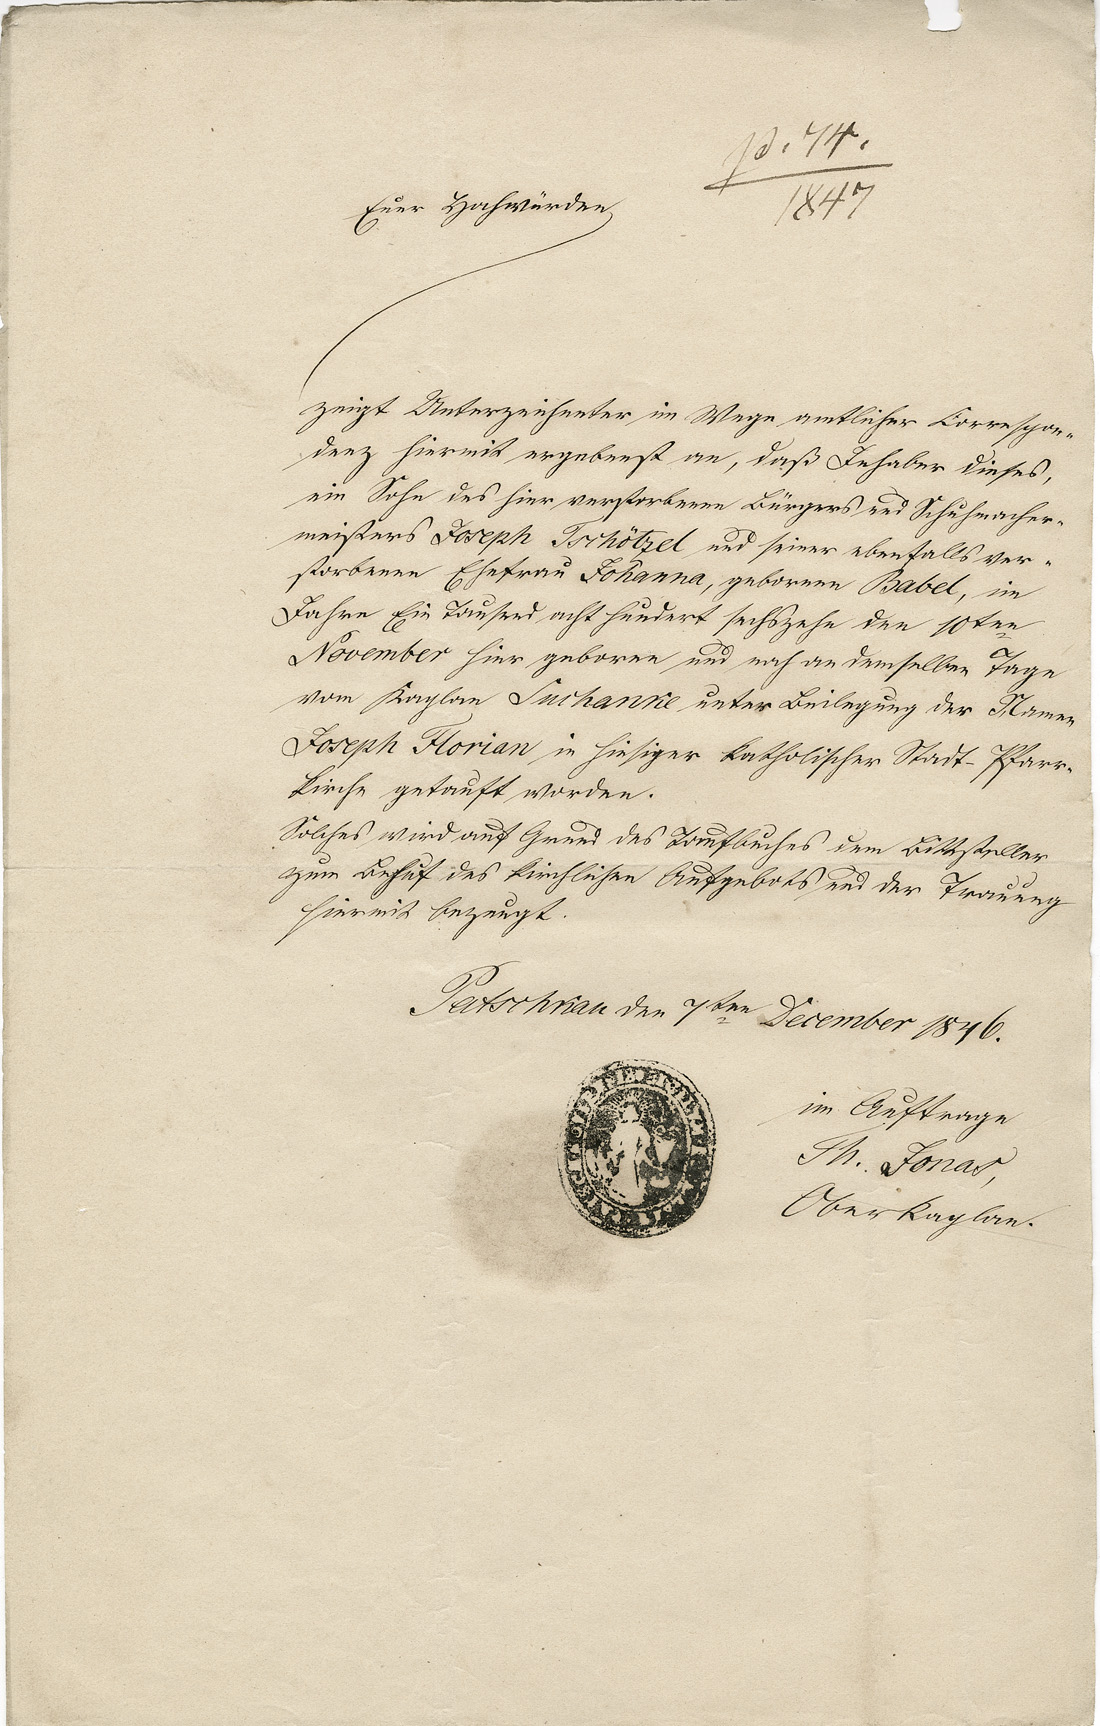 p. 74.
1847
Euer Hochwürden
zeigt Unterzeichneter im Wege amtlicher Correspon-
denz hiermit ergebenst an, daß Inhaber dieses,
ein Sohn des hier verstorbenen Bürgers und Schuhmacher-
meisters Joseph Tschötzel und seiner ebenfalls ver-
storbenen Ehefrau Johanna, geborene Babel, im
Jahre Ein Tausend acht hundert sechszehn den 10ten
November hier geboren und noch an demselben Tage
vom Kaplan Suchanke unter Beilegung der Namen
Joseph Florian in hiesiger katholischer Stadt-Pfarr-
kirche getauft worden.
Solches wird auf Grund des Taufbuches dem Bittsteller
zum Behuf des kirchlichen Aufgebots und der Trauung
hiermit bezeugt.
Patschkau den 7ten December 1846.
im Auftrage
Th. Jonas,
Oberkaplan.